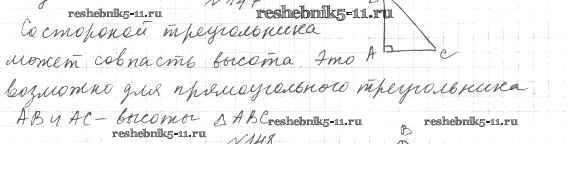 reshebnik5-11.ru reshebnik5-11.ru
Со стороной треугольника
может совпасть высота. Это A C
возможно для прямоугольного треугольника.
AB и AC – высоты △ ABC reshebnik5-11.ru reshebnik5-11.ru
reshebnik5-11.ru №148 B